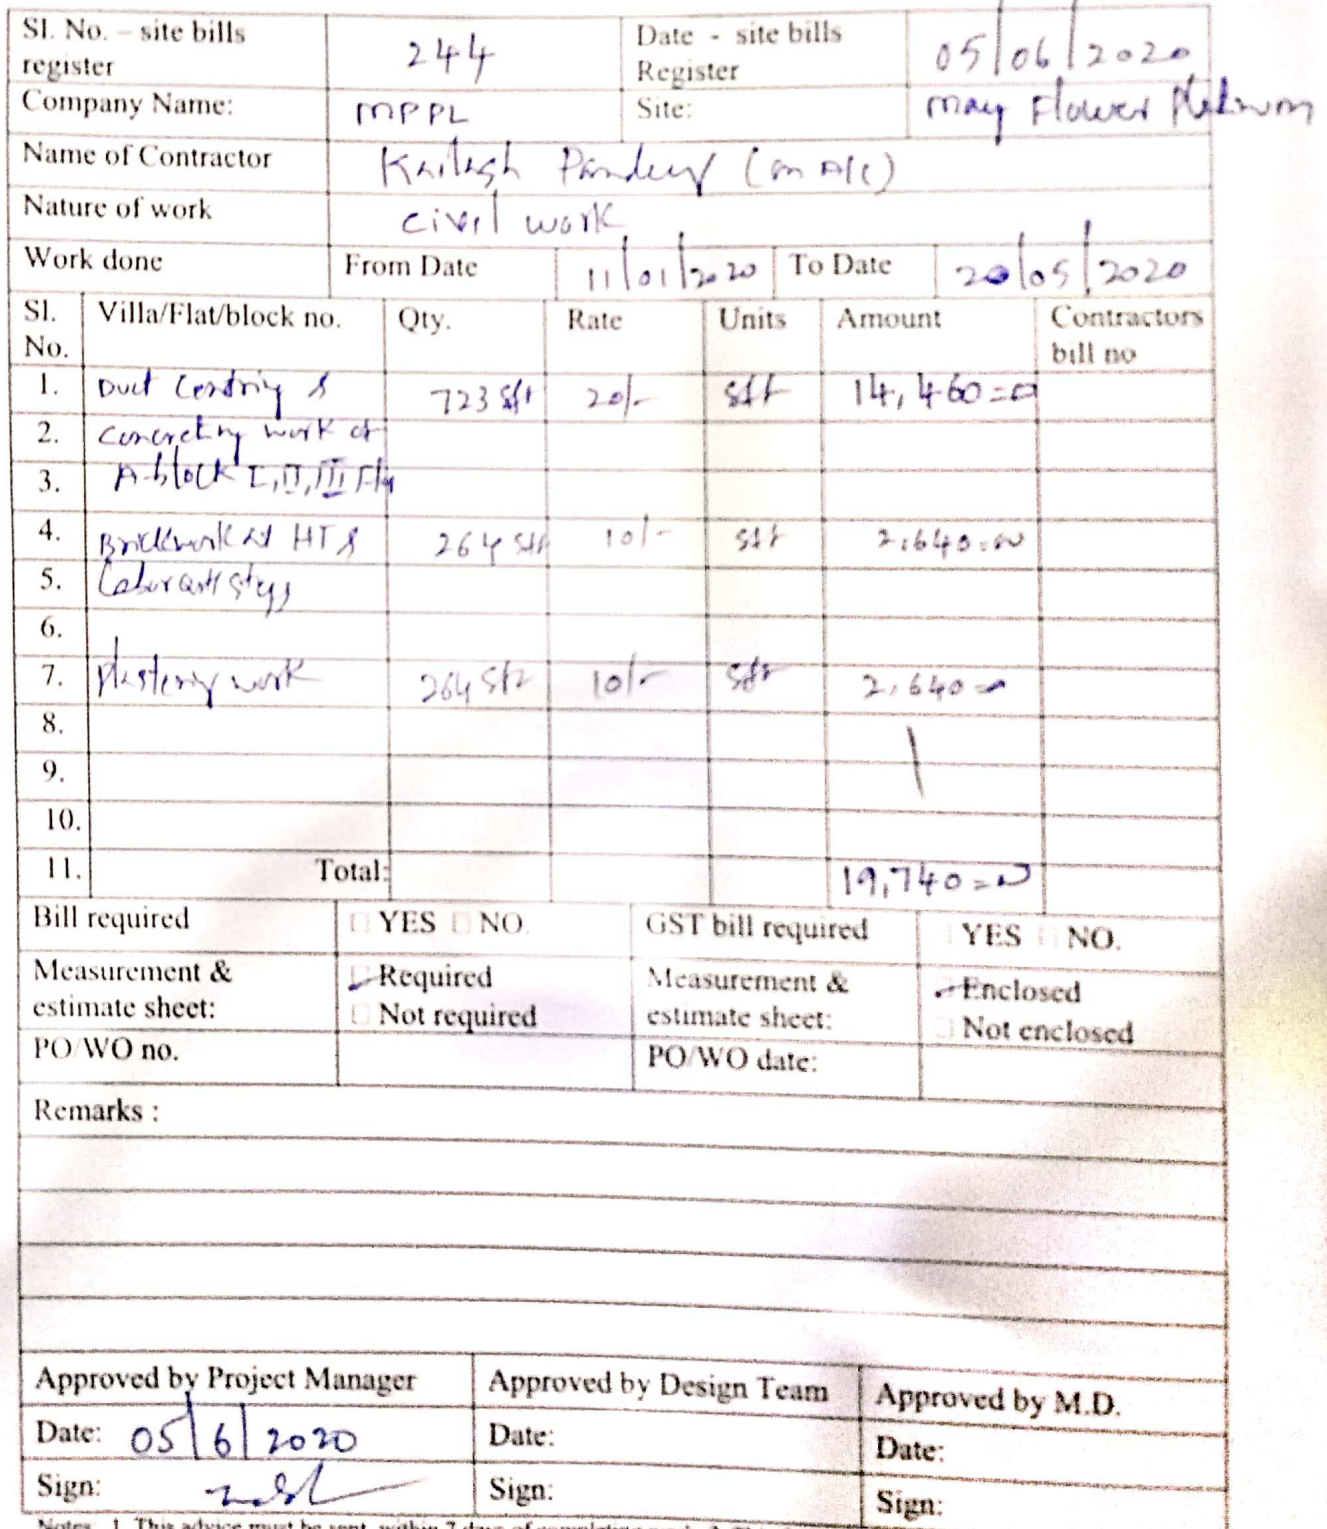 Sl. No. – site bills register 244 Date - site bills Register 05/06/2020
Company Name: MPPL Site: May Flower Platinum
Name of Contractor Kailash Pandey (on A/c)
Nature of work civil work
Work done From Date 11/01/2020 To Date 20/05/2020
Sl. No. Villa/Flat/block no. Qty. Rate Units Amount Contractors bill no
1. Duct Centring & 723 Sft 20/- Sft 14,460=00
2. Concreting work at
3. A-block I, II, III Flr
4. Brickwork at HT & 264 Sft 10/- Sft 2,640=00
5. steps
6.
7. Plastering work 264 Sft 10/- Sft 2,640=00
8.
9.
10.
11. Total: 19,740=00
Bill required YES NO. GST bill required YES NO.
Measurement & estimate sheet: Required Not required Measurement & estimate sheet: Enclosed Not enclosed
PO/WO no. PO/WO date:
Remarks :
Approved by Project Manager Approved by Design Team Approved by M.D.
Date: 05/6/2020 Date: Date:
Sign: Sign: Sign:
Notes 1. This advice must be sent within 7 days of